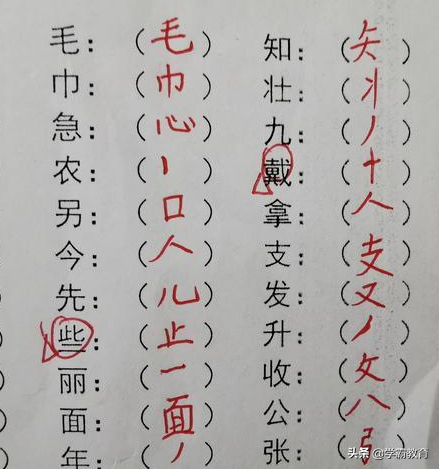 毛：（毛） 知：（矢）
巾：（巾） 壮：（丬）
急：（心） 九：（丿）
农：（丨） 戴：（十）
另：（口） 拿：（人）
今：（人） 支：（支）
先：（儿） 发：（又）
些：（止） 升：（丿）
丽：（一） 收：（攵）
面：（面） 公：（八）
年：（丿） 张：（弓）
头条 @学霸教育